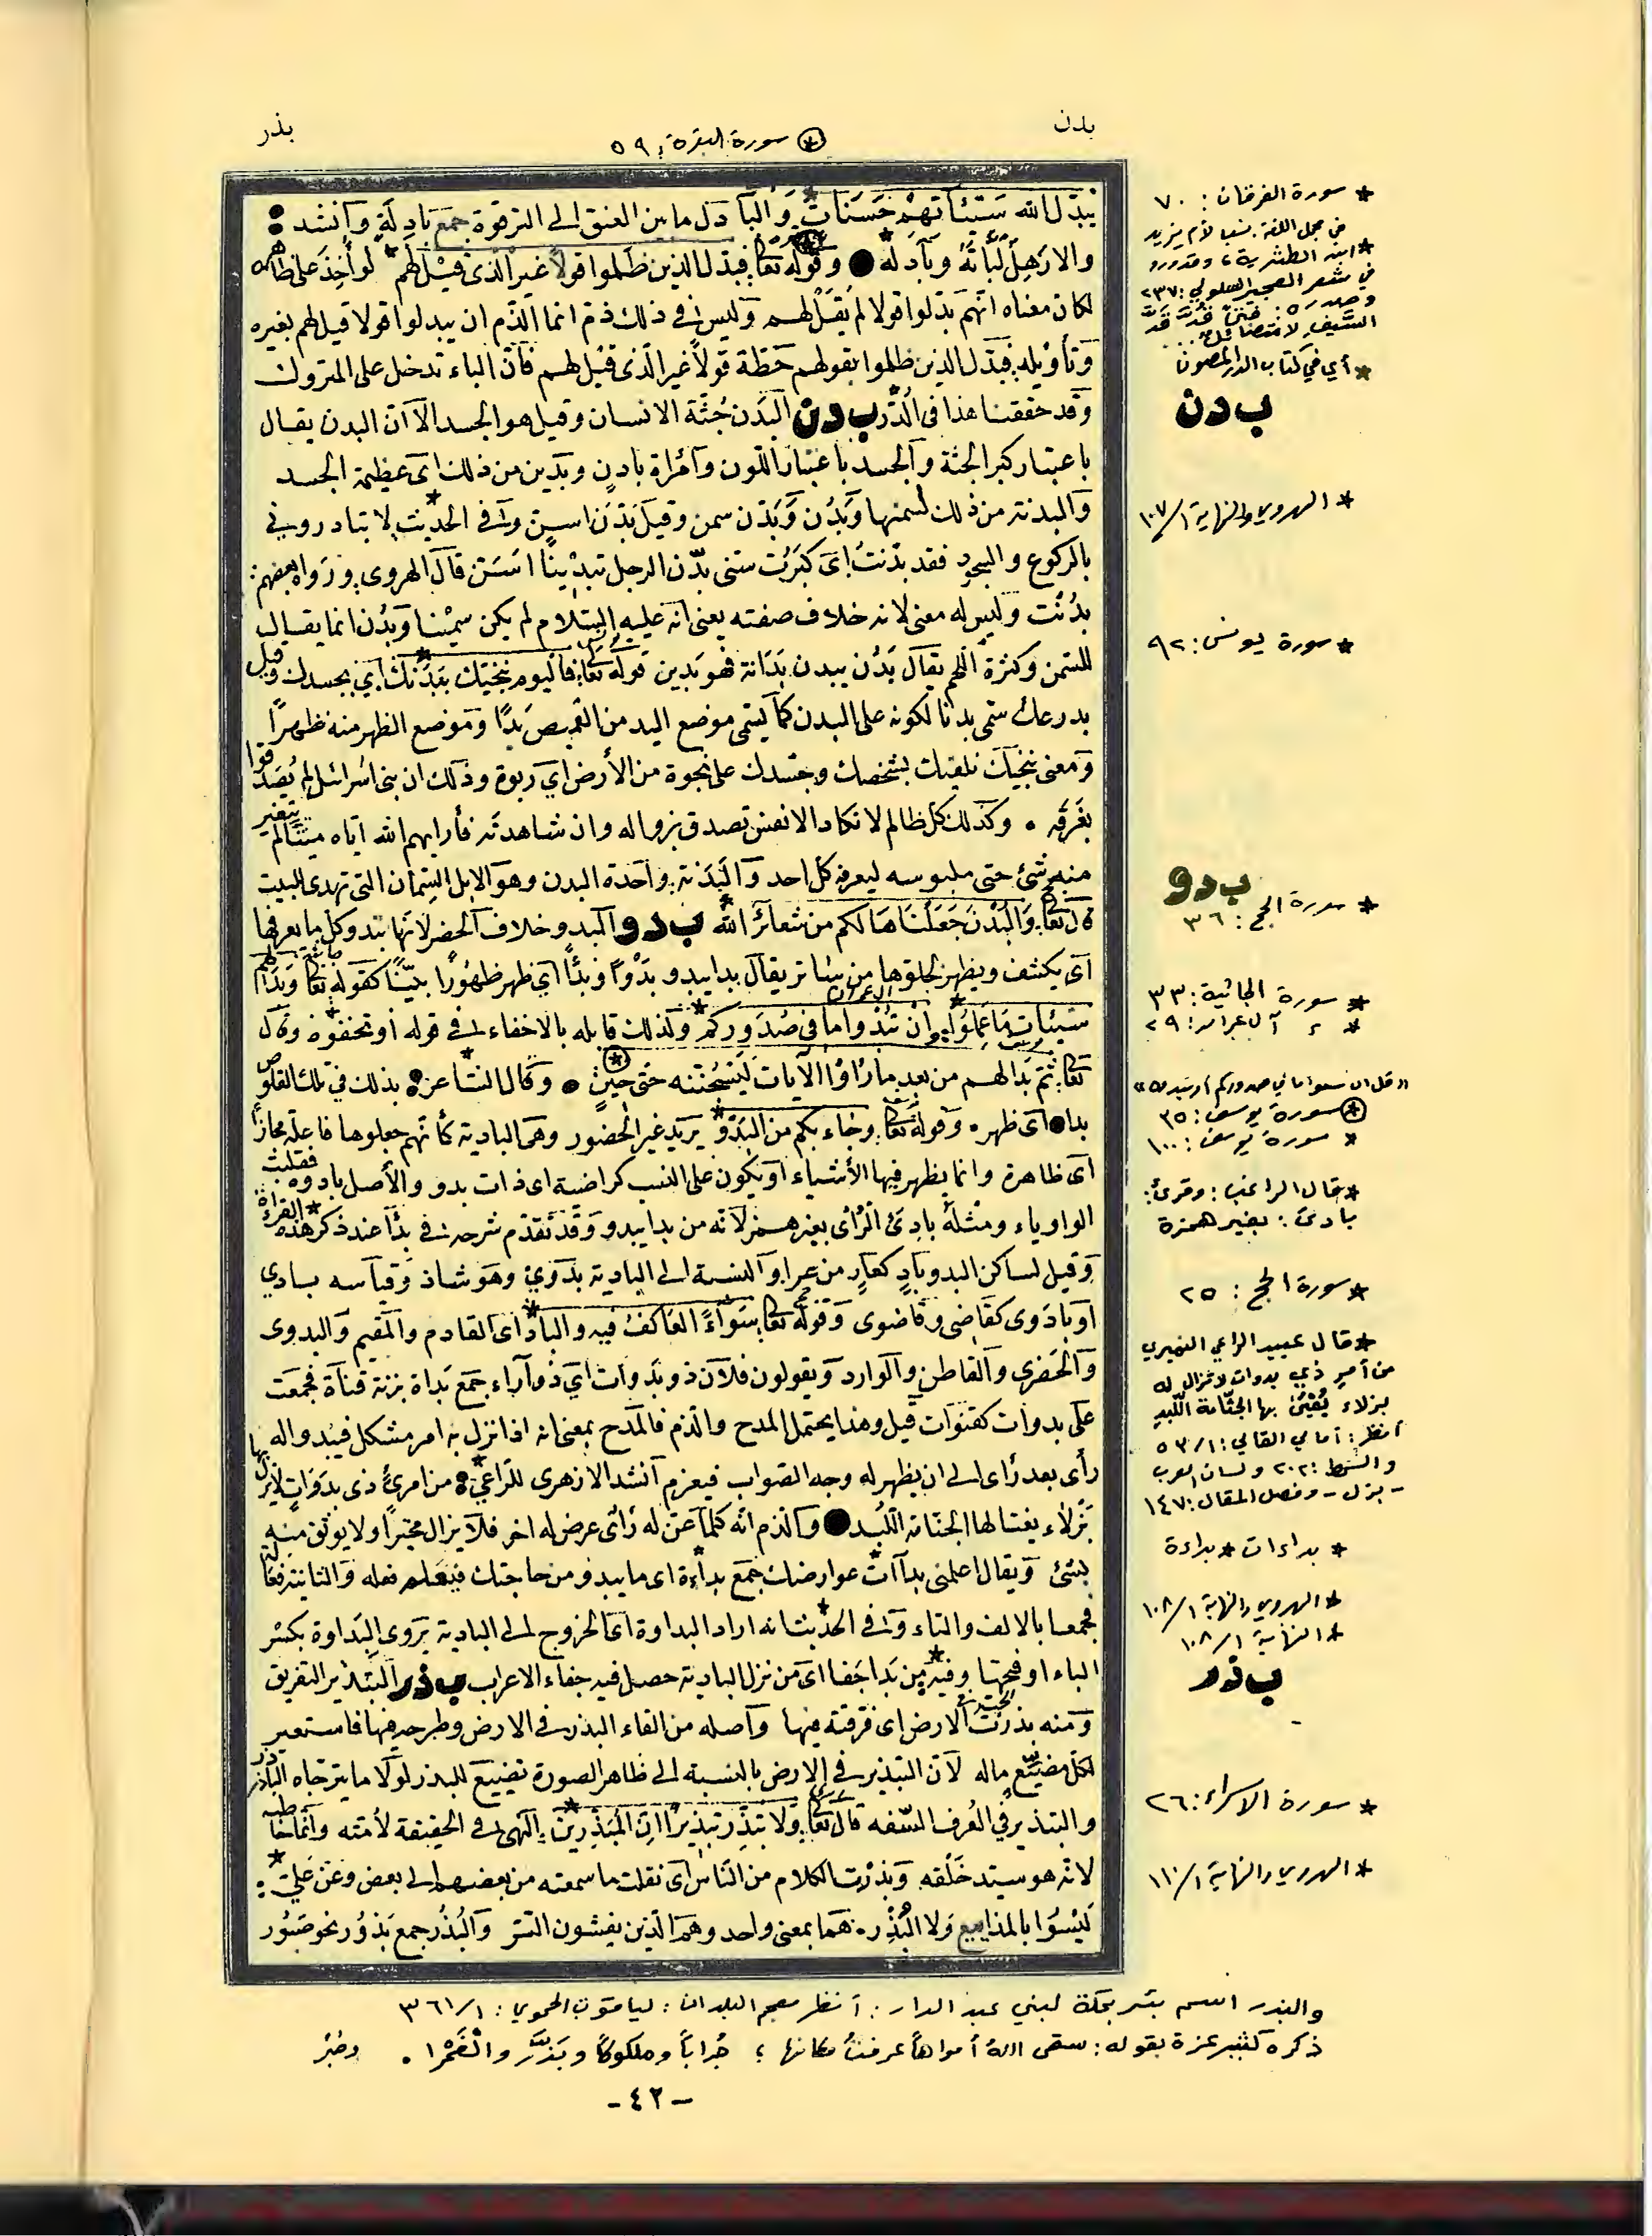 بدن
⊛ سورة البقرة: ٥٩
بذر
يبدل الله سيئاتهم حسنات والبآدل ما بين العنق الى الترقوة جمع بادلة وانشد:
ولا رهل لباته وبآدله ● وقوله تعا فبدل الذين ظلموا قولا غير الذى قيل لهم لو أخذ على ظاهره
لكان معناه انهم بدلوا قولا لم يقل لهم وليس فى ذلك ذم انما الذم ان يبدلوا قولا قيل لهم بغيره
وتأويله فبدل الذين ظلموا بقولهم حطة قولا غير الذى قيل لهم فان الباء تدخل على المتروك
وقد حققنا هذا فى الدر ب د ن البدن جثة الانسان وقيل هو الجسد الا ان البدن يقال
باعتبار كبر الجثة والجسد باعتبار اللون وامرأة بادن وبدين من ذلك اى عظيمة الجسد
والبدنة من ذلك لسمنها وبدن وبدن سمن وقيل بدن اسن وفى الحديث لا تبادرونى
بالركوع والسجود فقد بدنت اى كبرت سنى بدن الرجل تبدينا اسن قال الهروى ورواه بعضهم:
بدنت وليس له معنى لانه خلاف صفته يعنى انه عليه السلام لم يكن سمينا وبدن انما يقال
للسمن وكثرة اللحم يقال بدن يبدن بدانة فهو بدين قوله تعا فاليوم ننجيك ببدنك أي بجسدك وقيل
بدرعك سمى بدنا لكونه على البدن كما يسمى موضع اليد من القميص يدا وموضع الظهر منه ظهرا
ومعنى ننجيك نلقيك بشخصك وجسدك على نجوة من الأرض اي ربوة وذلك ان بنى اسرائيل لم يصدقوا
بغرقه ٠ وكذلك كل ظالم لا تكاد الانفس تصدق بزواله وان شاهدته فأراهم الله اياه ميتا لم يتغير
منه شئ حتى ملبوسه ليعرفه كل احد والبدنة واحدة البدن وهو الابل السمان التى تهدى للبيت
قال تعا والبدن جعلناها لكم من شعائر الله ب د و البدو خلاف الحضر لانها تبدو كل ما يعرفها
اى يكشف ويظهر لخلوها من ساتر يقال بدا يبدو بدوا وبدأ أي ظهر ظهورا بينا كقوله تعا وبدا لهم
سيئات ما عملوا وان تبدوا ما فى صدوركم ولذلك قابله بالاخفاء فى قوله أو تخفوه وقال
تعا ثم بدا لهم من بعد ما رأوا الآيات ليسجننه حتى حين ٠ وقال الشاعر بذلك في تلك القلوص
بدا ● اى ظهر ٠ وقوله تعا وجاء بكم من البدو يريد غير الحضور وهى البادية كأنهم جعلوها فاعلة مجازا
اى ظاهرة وانما يظهر فيها الأشياء او يكون على النسب كراضية اى ذات بدو والأصل بادوة فقلبت
الواو ياء ومثله بادى الرأى بغير همز لأنه من بدا يبدو وقد تقدم شرحه فى بدأ عند ذكر هذه القراءة
وقيل لساكن البدو باد كعار من عرا والنسبة الى البادية بدوي وهو شاذ وقياسه بادي
او بادوى كقاضى وقاضوى وقوله تعا سواء العاكف فيه والباد اى القادم والمقيم والبدوى
والحضرى والقاطن والوارد ويقولون فلان ذو بدوات أي ذو آراء جمع بداة بزنة قناة فجمعت
على بدوات كقنوات قيل وهذا يحتمل المدح والذم فالمدح بمعنى انه اذا نزل به امر مشكل فيبدو له
رأى بعد رأى الى ان يظهر له وجه الصواب فيعزم أنشد الازهرى للراعي من امرئ ذى بدوات لا يزال بها
بزلاء يعيا لها الجثامة اللبد ● والذم انه كلما عن له رأى عرض له اخر فلا يزال محيرا ولا يوثق منه
بشئ ويقال اعلمنى بدآات عوارضك جمع بداءة اى ما يبدو من حاجتك فيعلم فعله والثانية فعالة
فجمعا بالالف والتاء وفى الحديث انه اراد البداوة اى الخروج الى البادية يروى البداوة بكسر
الباء او فتحها وفيه من بدا جفا اى من نزل البادية حصل فيه جفاء الاعراب ب ذ ر التبذير التفريق
ومنه بذرت الحب فى الارض اى فرقته فيها وأصله من القاء البذر فى الارض وطرحه فيها فاستعير
لكل مضيع ماله لان التبذير فى الارض بالنسبة الى ظاهر الصورة تضييع للبذر لولا ما يترجاه الباذر
والتبذير في العرف السفه قال تعا ولا تبذر تبذيرا ان المبذرين النهى فى الحقيقة لأمته وانما خاطبه
لانه هو سيد خلقه وبذرت الكلام من الناس اى نقلت ما سمعته من بعضهم الى بعض وعن علي:
ليسوا بالمذاييع ولا البذر ٠ هما بمعنى واحد وهم الذين يفشون السر والبذر جمع بذور نحو صبور
* سورة الفرقان: ٧٠
في مجمل اللغة: نسبا لأم يزيد
* ابنة الطثرية، وقد ورد
في شعر العجير السلولي: ٢٣٧
وصدره: فتى قد قد
السيف لا متضائل
* أي في كتاب الدر المصون
ب د ن
* الهروي والنهاية ١/١٠٧
* سورة يونس: ٩٢
ب د و
* سورة الحج: ٣٦
* سورة الجاثية: ٣٣
* ، آل عمران: ٢٩
«قل ان تخفوا ما في صدوركم أو تبدوه»
⊛ سورة يوسف: ٣٥
* سورة يوسف: ١٠٠
* قال الراغب: وقرئ:
بادئ: بغير همزة
* سورة الحج: ٢٥
* قال عبيد الراعي النميري
من أمر ذي بدوات لا تزال له
بزلاء يعيى بها الجثامة اللبد
أنظر: أمالي القالي: ١/٥٣
والسمط: ٢٠٢ ولسان العرب
- بزل - وفصل المقال: ١٤٧
* بداءات * بداءة
* الهروي والنهاية ١/١٠٨
* النهاية ١/١٠٨
ب ذ ر
* سورة الاسراء: ٢٦
* الهروي والنهاية ١/١١٠
والبذر اسم بئر بمكة لبني عبد الدار: أنظر معجم البلدان: لياقوت الحموي: ١/٣٦١
ذكره كثير عزة بقوله: سقى الله أمواها عرفت مكانها؛ جرابا وملكوما وبذر والغمرا ٠
-٤٢-